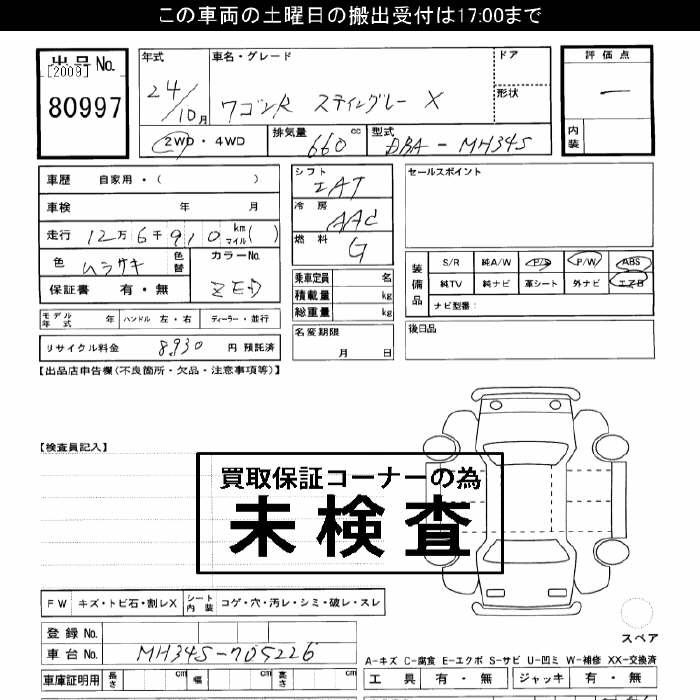 この車両の土曜日の搬出受付は17:00まで
出品No.
[2009]
80997
年式
24/10月
車名・グレード
ワゴンR スティングレー X
ドア
形状
評価点
ー
内装
2WD・4WD
排気量
660 cc
型式
DBA-MH34S
車歴 自家用・( )
車検 年 月
走行 12万6千910 km マイル( )
色 ムラサキ 色替
カラーNo.
ZED
保証書 有・無
シフト
IAT
冷房
AAC
燃料
G
乗車定員 名
積載量 kg
総重量 kg
セールスポイント
装備品
S/R 純A/W P/S P/W ABS
純TV 純ナビ 革シート 外ナビ エアB
ナビ型番:
モデル年式 年 ハンドル 左・右 ディーラー・並行
リサイクル料金 8,930 円 預託済
名変期限
月 日
後日品
【出品店申告欄(不良箇所・欠品・注意事項等)】
【検査員記入】
買取保証コーナーの為
未検査
FW キズ・トビ石・割レX シート内装 コゲ・穴・汚レ・シミ・破レ・スレ
スペア
登録No.
車台No. MH34S-705226
A-キズ C-腐食 E-エクボ S-サビ U-凹ミ W-補修 XX-交換済
車庫証明用 長さ cm 幅 cm 高さ cm
工具 有・無 ジャッキ 有・無